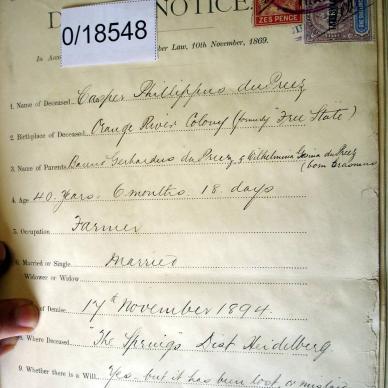 D NOTICE.
0/18548
ZES PENCE
In Acc ber Law, 10th November, 1869.
1. Name of Deceased Casper Phillippus du Preez
2. Birthplace of Deceased Orange River Colony (formerly "Free State")
3. Name of Parents Gerhardus du Preez & Wilhelmina du Preez
(born Erasmus
4. Age 40 Years. 6 months. 18 days
5. Occupation Farmer
6. Married or Single Married
Widower or Widow
of Demise 17th November 1894.
8. Where Deceased "The Springs" Dist Heidelberg
9. Whether there is a Will Yes, but it has been lost or